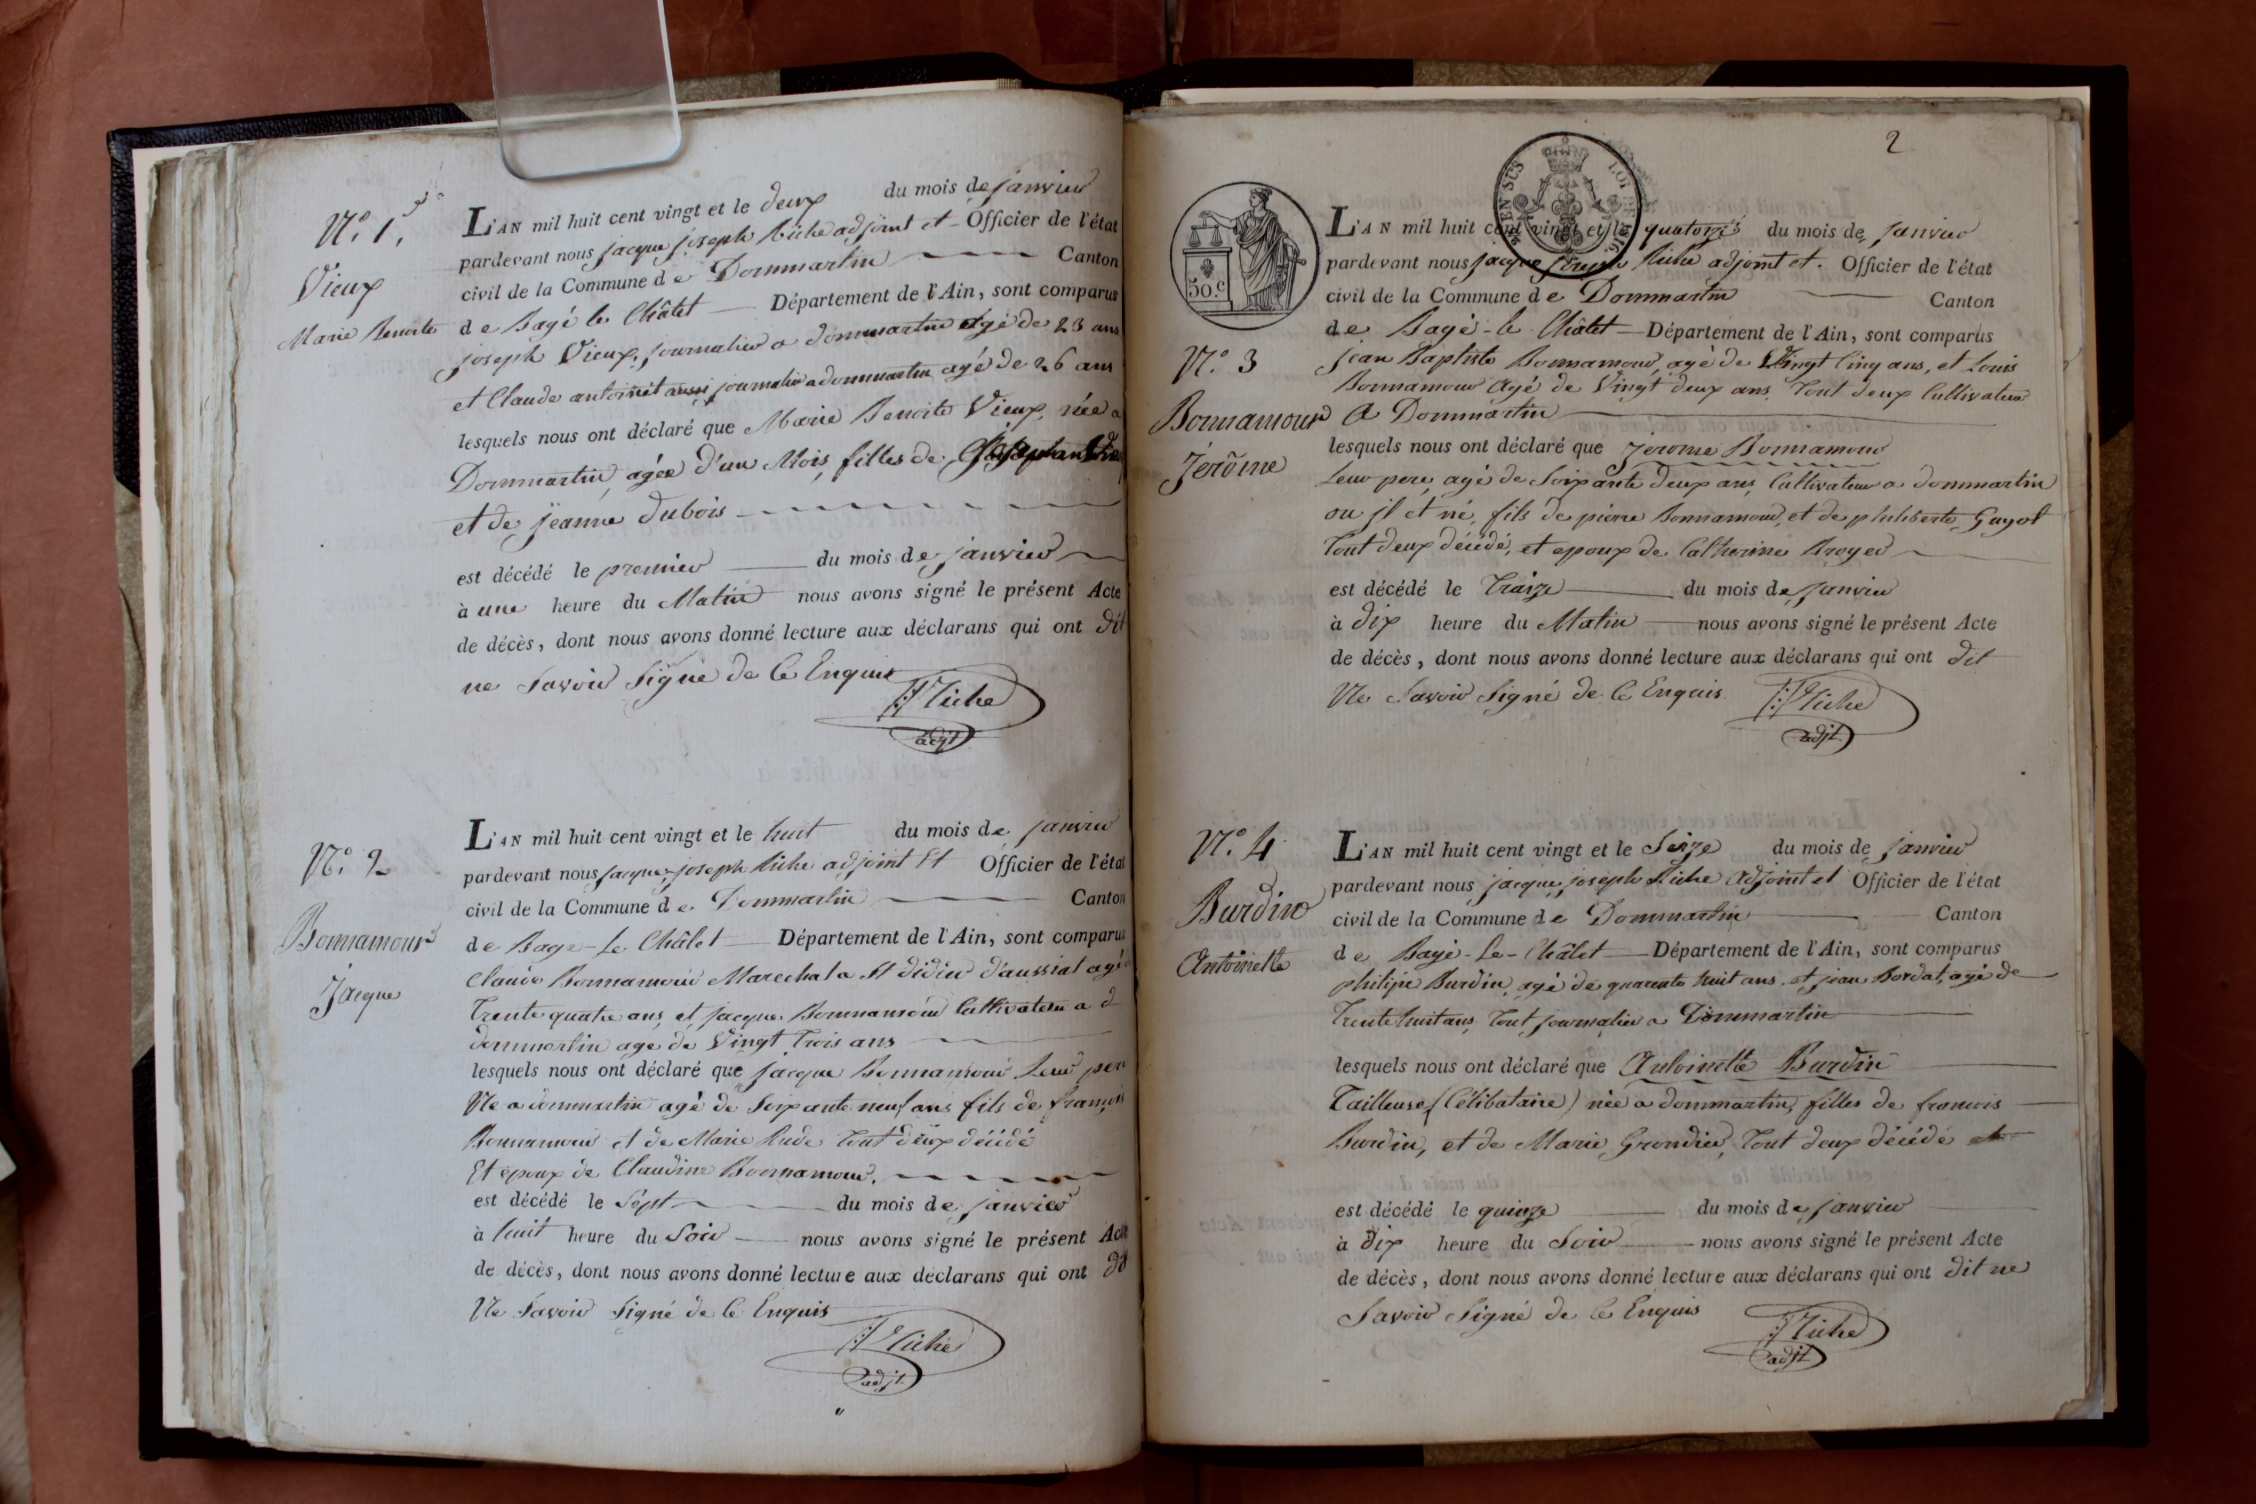 N.° 1.er
Vieux
Marie Benoite
L'AN mil huit cent vingt et le deux du mois de janvier
pardevant nous jacque joseph Riche adjoint et Officier de l'état
civil de la Commune de Dommartin Canton
de Bagé le Châtet Département de l'Ain, sont comparus
joseph Vieux, journalier a dommartin agé de 23 ans
et Claude antoinet aussi journalier a dommartin agé de 26 ans
lesquels nous ont déclaré que Marie Benoite Vieux, née a
Dommartin, agée d'un Mois, filles de
et de jeanne dubois
est décédé le premier du mois de janvier
à une heure du Matin nous avons signé le présent Acte
de décès, dont nous avons donné lecture aux déclarans qui ont dit
ne Savoir Signé de Ce Enquis
Riche
adjt
N.° 2
Bonnamour
Jacque
L'AN mil huit cent vingt et le huit du mois de janvier
pardevant nous jacque joseph Riche adjoint Et Officier de l'état
civil de la Commune de Dommartin Canton
de Bage-Le Châlet Département de l'Ain, sont comparus
Claude Bonnamour Marechal a St didier d'aussiat agé
Trente quatre ans, et jacque Bonnamour Cultivateur a d
dommartin age de Vingt Trois ans
lesquels nous ont déclaré que jacque Bonnamour Leur pere
Ne a dommartin agé de Soixante neuf ans fils de francois
Bonnamour et de Marie Rude Tout deux décédé
Et époux de Claudine Bonnamour.
est décédé le Sept du mois de janvier
à huit heure du Soir nous avons signé le présent Acte
de décès, dont nous avons donné lecture aux déclarans qui ont dit
Ne Savoir Signé de Ce Enquis
Riche
adjt.
2
EN SUS LOI DE 1816.
50.c
L'AN mil huit cent vingt et le quatorze du mois de janvier
pardevant nous jacque joseph Riche adjoint et. Officier de l'état
civil de la Commune de Dommartin Canton
de Bagé-le Châlet Département de l'Ain, sont comparus
N.° 3
Bonnamour
Jérôme
jean Baptiste Bonnamour, agé de Vingt Cinq ans, et Louis
Bonnamour Agé de Vingt deux ans, Tout deux Cultivateur
A Dommartin
lesquels nous ont déclaré que Jerome Bonnamour
Leur pere, agé de Soixante deux ans, Cultivateur a dommartin
ou jl et né, fils de pierre Bonnamour, et de philiberte Guyot
Tout deux décédé, et epoux de Catherine Broyer
est décédé le Traize du mois de janvier
à Dix heure du Matin nous avons signé le présent Acte
de décès, dont nous avons donné lecture aux déclarans qui ont dit
Ne Savoir Signé de Ce Enquis
Riche
adjt.
N.° 4
Burdin
Antoinette
L'AN mil huit cent vingt et le Seize du mois de janvier
pardevant nous jacque joseph Riche Adjoint et Officier de l'état
civil de la Commune de Dommartin Canton
de Bagé-Le-Châlet Département de l'Ain, sont comparus
philipe Burdin, agé de quarente huit ans, et jean Bordat, agé de
Trente huit ans, Tout journalier a Dommartin
lesquels nous ont déclaré que Antoinette Burdin
Tailleuse, (Célibataire) née a dommartin, filles de francois
Burdin, et de Marie, Grondier, Tout deux décédé et
est décédé le quinze du mois de janvier
à Dix heure du Soir nous avons signé le présent Acte
de décès, dont nous avons donné lecture aux déclarans qui ont dit ne
Savoir Signé de Ce Enquis
Riche
adjt